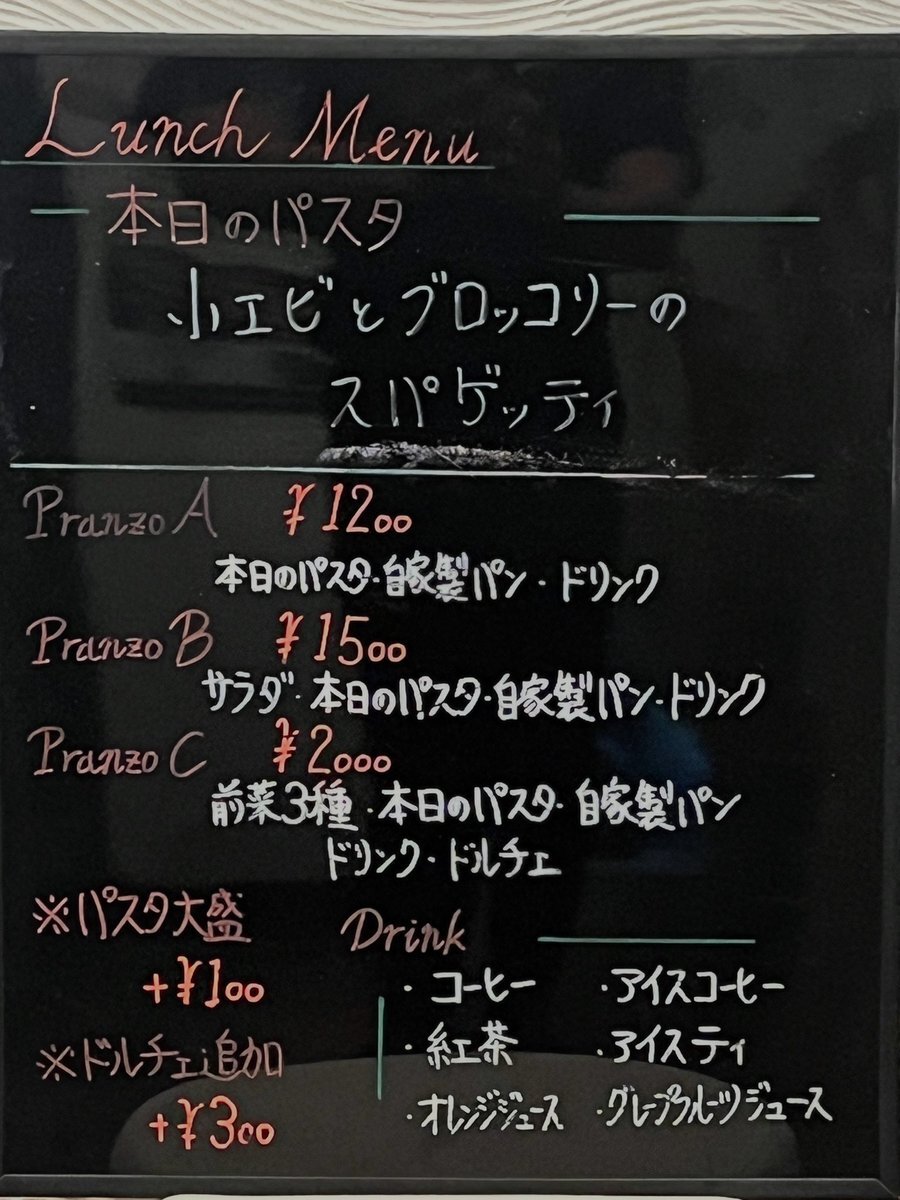 Lunch Menu
本日のパスタ
小エビとブロッコリーの
スパゲッティ
Pranzo A ¥1200
本日のパスタ・自家製パン・ドリンク
Pranzo B ¥1500
サラダ・本日のパスタ・自家製パン・ドリンク
Pranzo C ¥2000
前菜3種・本日のパスタ・自家製パン
ドリンク・ドルチェ
※パスタ大盛
+¥100
※ドルチェ追加
+¥300
Drink
・コーヒー ・アイスコーヒー
・紅茶 ・アイスティ
・オレンジジュース ・グレープフルーツジュース